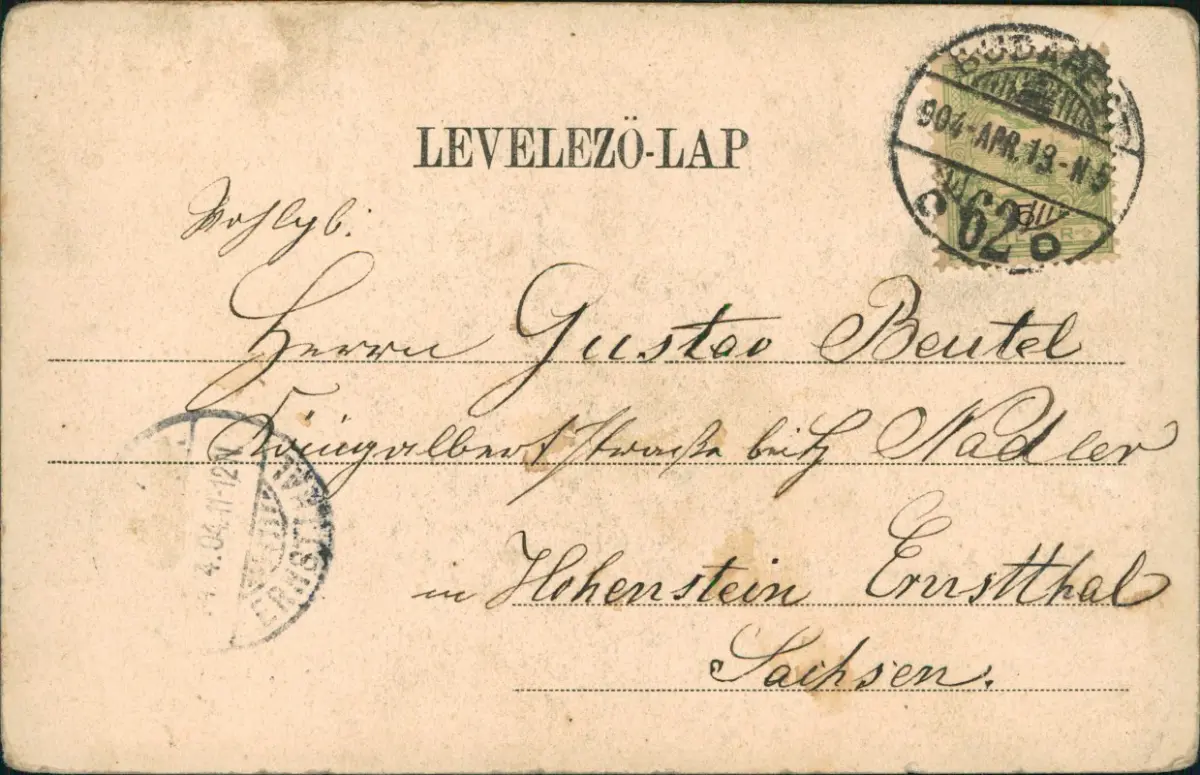 LEVELEZÖ-LAP
BUDAPEST
904-APR.13.-N5
62
Wohlgb.
Herrn Gustav Beutel
Königalbertstraße Nadler
in Hohenstein Ernstthal
Sachsen.
4.04.11-12V.
ERNSTTHAL